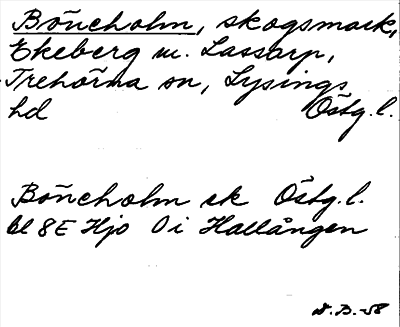 Böneholm, skogsmark,
Ekeberg m. Lassarp,
Trehörna sn, Lysings
hd Östg.l.
Böneholm sk Östg.l.
bl 8E Hjo 0 i Hallången
N.B.-58